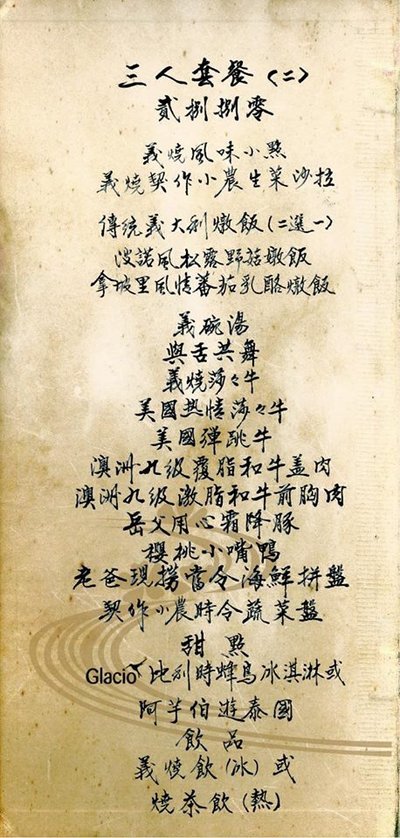 三人套餐〈二〉
貳捌捌零
義燒風味小點
義燒契作小農生菜沙拉
傳統義大利燉飯(二選一)
波諾風松露野菇燉飯
拿坡里風情蕃茄乳酪燉飯
義碗湯
與舌共舞
義燒莎々牛
美國熱情莎々牛
美國彈跳牛
澳洲九級覆脂和牛蓋肉
澳洲九級激脂和牛前胸肉
岳父用心霜降豚
櫻桃小嘴鴨
老爸現撈當令海鮮拼盤
契作小農時令蔬菜盤
甜點
Glacio比利時蜂鳥冰淇淋或
阿芋伯遊泰國
飲品
義燒飲(冰)或
燒茶飲(熱)